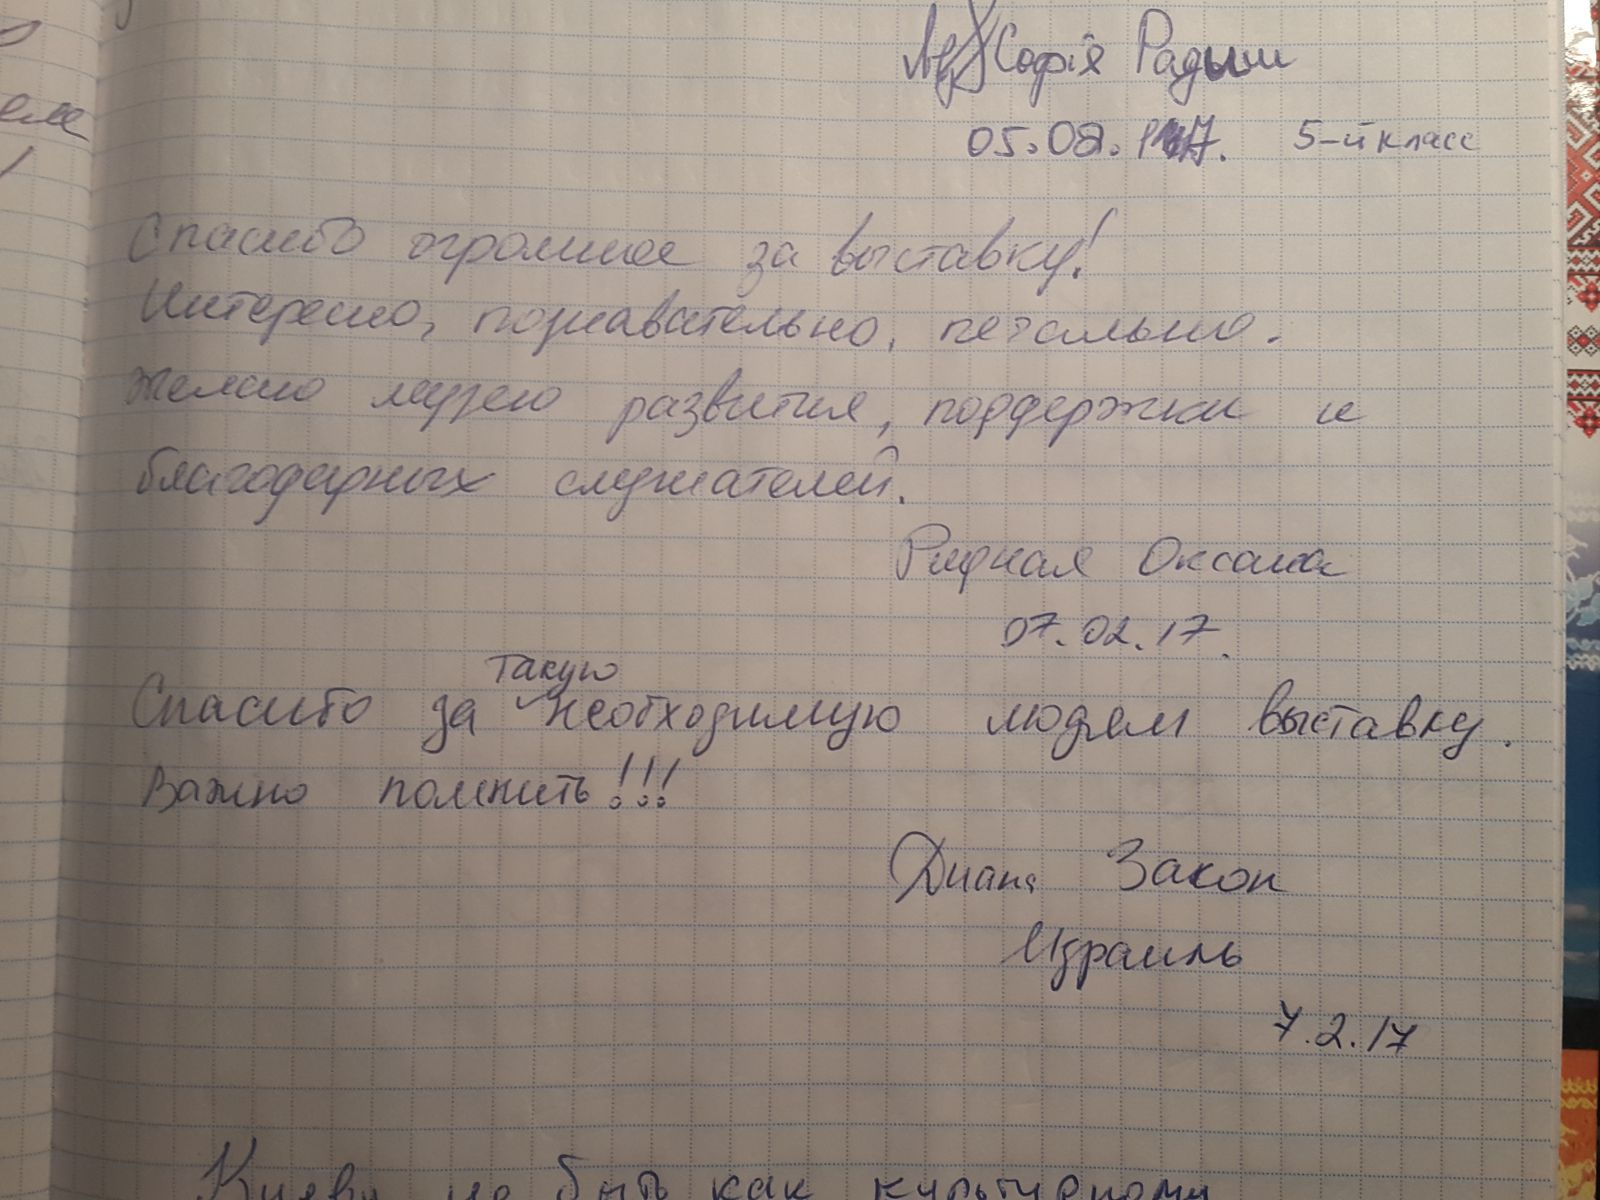 Софія
05.02.17. 5-й класс
Спасибо огромное за выставку!
Интересно, познавательно, печально.
Желаю музею развития, поддержки и
благодарных слушателей.
Ридная Оксана
07.02.17.
Спасибо за такую необходимую людям выставку.
Важно помнить!!!
Диана Закон
Израиль
7.2.17
Киеву не быть как культурному